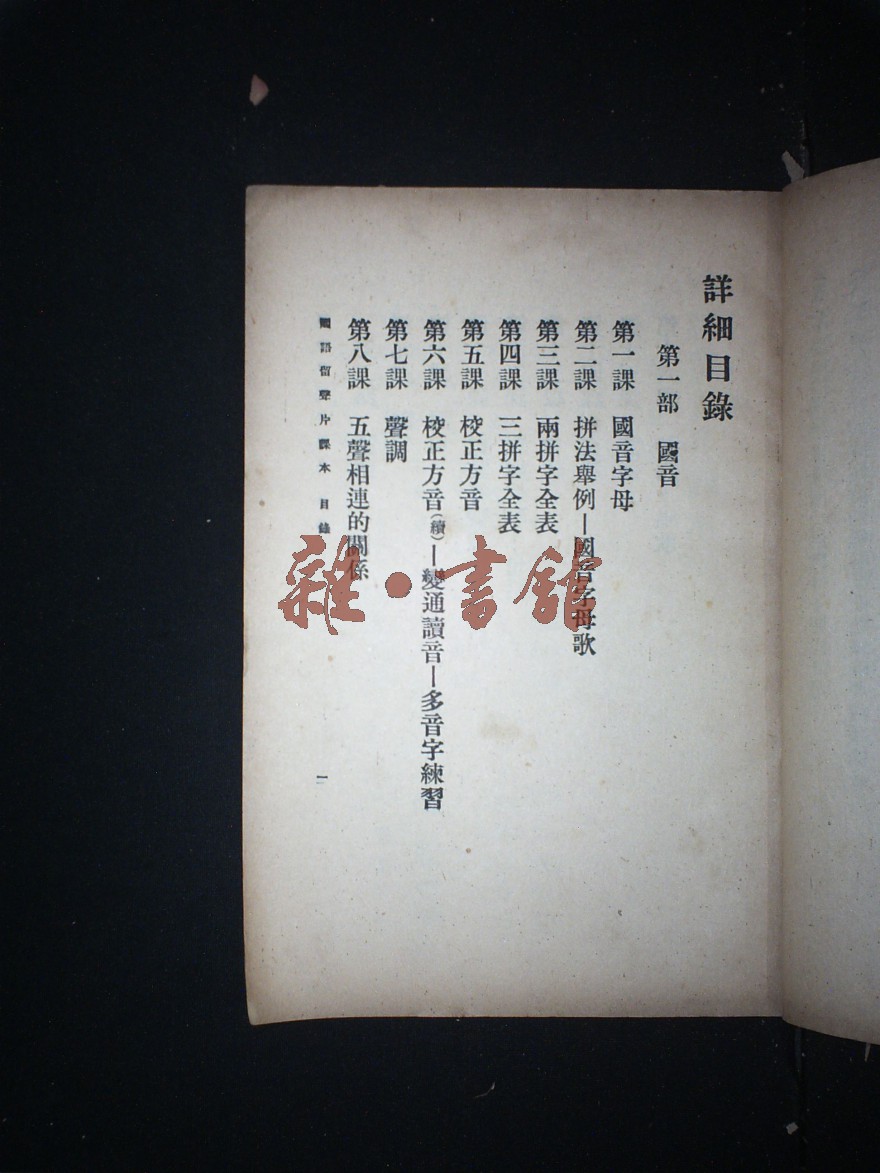 詳細目錄
第一部 國音
第一課 國音字母
第二課 拼法舉例—國音字母歌
第三課 兩拼字全表
第四課 三拼字全表
第五課 校正方音
第六課 校正方音(續)—變通讀音—多音字練習
第七課 聲調
第八課 五聲相連的關係
國語留聲片課本 目錄 一
雜·書館